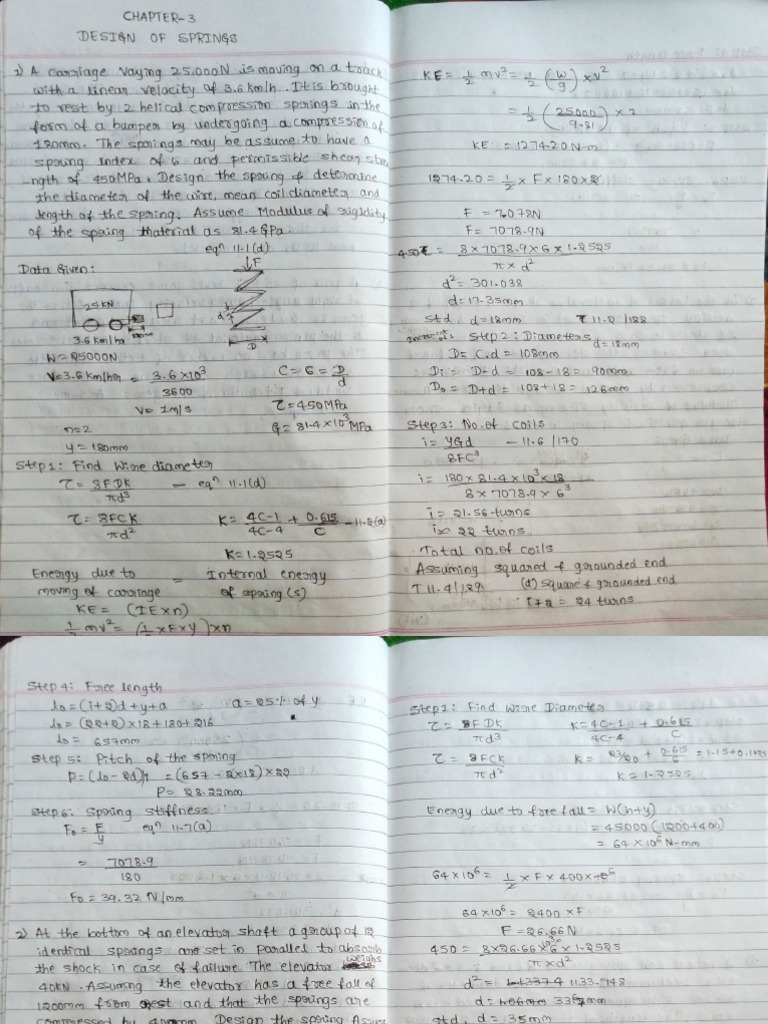 CHAPTER-3
DESIGN OF SPRINGS
1) A carriage vaying 25,000N is moving on a track
with a linear velocity of 3.6 km/h. It is brought
to rest by 2 helical compression springs in the
form of a bumper by undergoing a compression of
180mm. The springs may be assume to have a
spring index of 6 and permissible shear stre
ngth of 450MPa. Design the spring & determine
the diameter of the wire, mean coil diameter and
length of the spring. Assume Modulus of rigidity
of the spring material as 81.4 GPa.
eqⁿ 11.1(d)
Data Given:
F
25KN
d
D
3.6 km/hr
W = 25000N
V = 3.6 km/hr = 3.6 × 10³ / 3600
C = 6 = D/d
V = 1m/s
τ = 450 MPa
n = 2
G = 81.4 × 10³ MPa
y = 180mm
Step 1: Find Wire diameter
τ = 8FDK / πd³ — eqⁿ 11.1(d)
τ = 8FCK / πd²
K = 4C-1 / 4C-4 + 0.615 / C — 11.2(a)
K = 1.2525
Energy due to = Internal energy
moving of carriage of spring(s)
KE = (IE × n)
½ mv² = (½ × F × y) × n
KE = ½ mv² = ½ (W/g) × v²
= ½ (25000 / 9.81) × 1
KE = 1274.20 N-m
1274.20 = ½ × F × 180 × 2
F = 7.078N
F = 7078.9N
450 = 8 × 7078.9 × 6 × 1.2525 / π × d²
d² = 301.038
d = 17.35mm
std. d = 18mm T 11.2 / 188
Step 2: Diameters d = 18mm
D = C.d = 108mm
Di = D-d = 108 - 18 = 90mm
Do = D+d = 108 + 18 = 126mm
Step 3: No. of coils
i = yGd / 8FC³ — 11.6 / 170
i = 180 × 81.4 × 10³ × 18 / 8 × 7078.9 × 6³
i = 21.56 turns
i ≈ 22 turns
Total no. of coils
Assuming squared & grounded end
T 11.4/189 (d) square & grounded end
i+2 = 24 turns
Step 4: Free length
lo = (i+2)d + y + a a = 25% of y
lo = (22+2) × 18 + 180 + 216
lo = 657mm
Step 5: Pitch of the spring
P = (lo - 2d)/i = (657 - 2×18) × 22
P = 28.22mm
Step 6: Spring stiffness
Fo = F/y eqⁿ 11.7(a)
= 7078.9 / 180
Fo = 39.32 N/mm
2) At the bottom of an elevator shaft a group of 12
identical springs are set in parallel to absorb
the shock in case of failure. The elevator weighs
40KN. Assuming the elevator has a free fall of
1200mm from rest and that the springs are
compressed by 400mm. Design the spring Assume
Step 1: Find Wire Diameter
τ = 8FDK / πd³ K = 4C-1 / 4C-4 + 0.615 / C
τ = 8FCK / πd² K = 23/20 + 0.615/6 = 1.15 + 0.1025
K = 1.2525
Energy due to free fall = W(h+y)
= 45000 (1200+400)
= 64 × 10⁶ N-mm
64 × 10⁶ = ½ × F × 400 ×
64 × 10⁶ = 2400 × F
F = 26.66 N
450 = 8 × 26.66 × 10³ × 6 × 1.2525 / π × d²
d² = 1133.948
d = 33.67mm
std. d = 35mm